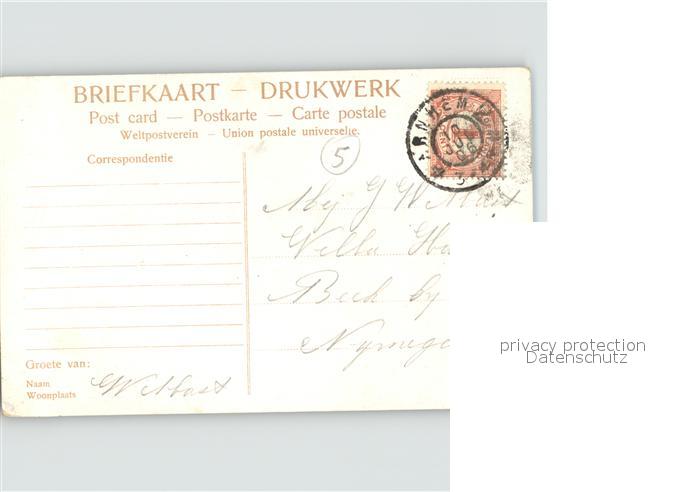 BRIEFKAART — DRUKWERK
Post card — Postkarte — Carte postale
Weltpostverein – Union postale universelle.
Correspondentie
5
Mej J W
Villa
Beek by
Nymeg
Groete van:
Naam
Woonplaats
ARNHEM
privacy protection
Datenschutz